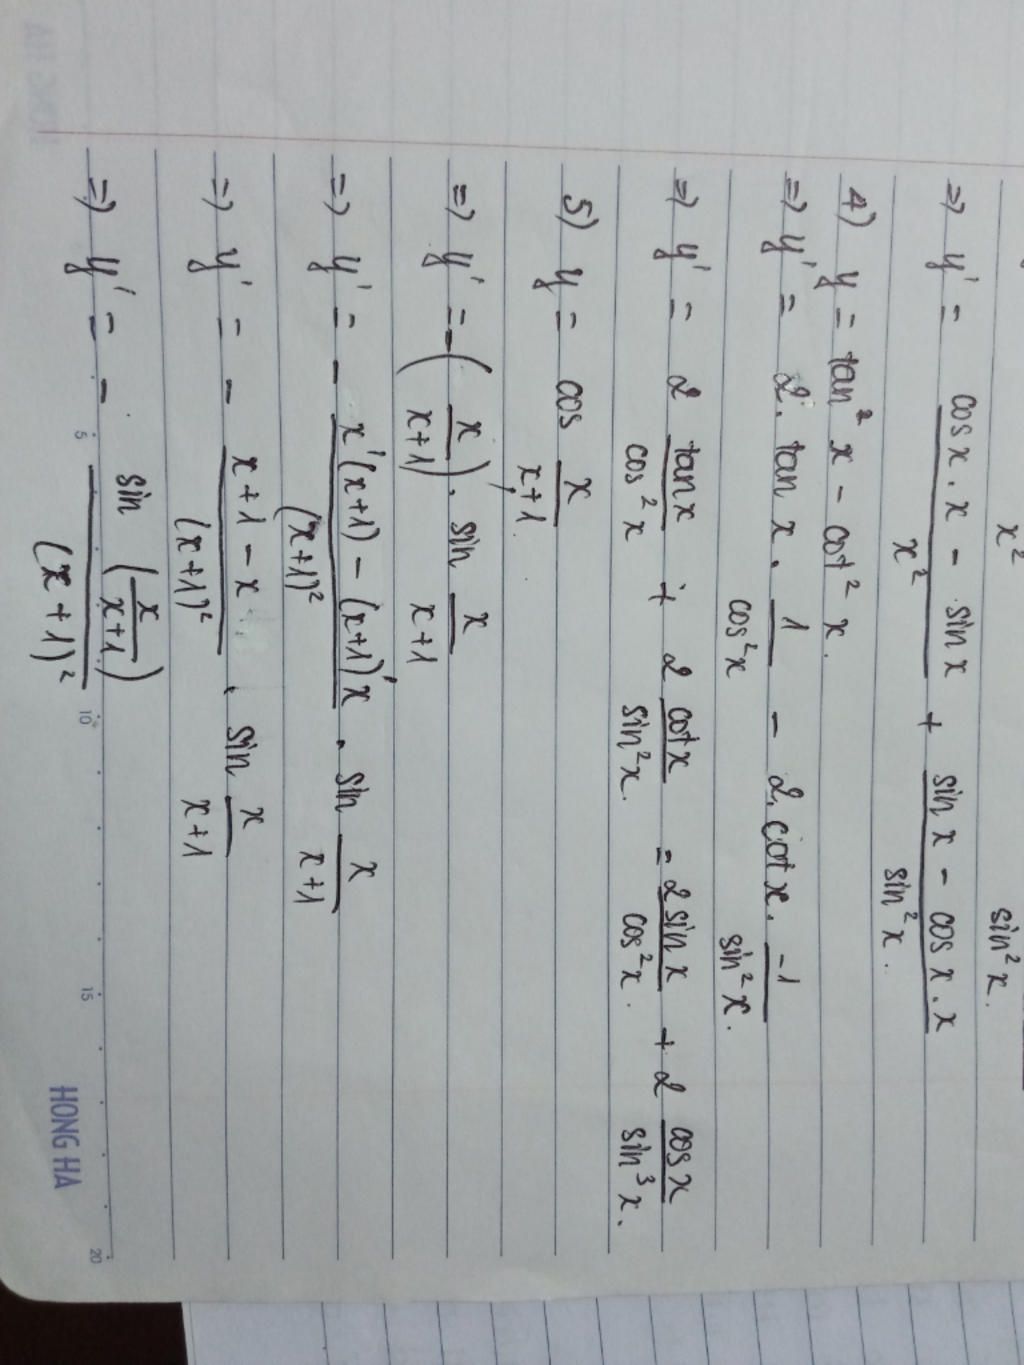 x² sin²x.
=> y' = (cosx.x - sinx)/x² + (sinx - cosx.x)/sin²x.
4) y = tan²x - cot²x.
=> y' = 2.tanx. 1/cos²x - 2.cotx. -1/sin²x.
=> y' = 2 tanx/cos²x + 2 cotx/sin²x. = 2sinx/cos²x. + 2 cosx/sin³x.
5) y = cos x/(x+1).
=> y' = -(x/(x+1))'. sin x/(x+1)
=> y' = - (x'(x+1) - (x+1)'x)/(x+1)² . sin x/(x+1)
=> y' = - (x+1-x)/(x+1)² . sin x/(x+1)
=> y' = - sin(x/(x+1))/(x+1)²
5 10 15 20
HONG HA